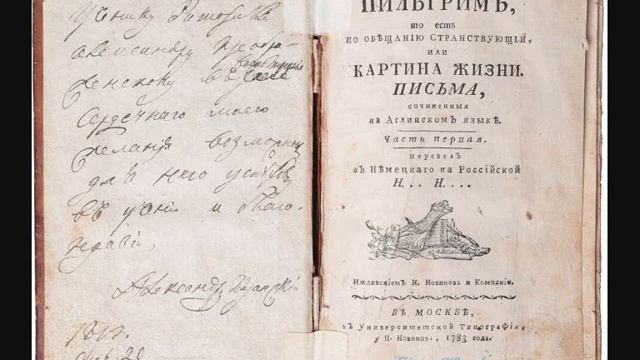 Ученику Риторики
Александру Преобра
женскому въ знакъ
Сердечнаго моего
желанія
для него успѣховъ
въ ученіи и благо
нравіи,
Александръ
ПИЛЬГРИМЪ,
то есть
ПО ОБѢЩАНІЮ СТРАНСТВУЮЩІЙ,
ИЛИ
КАРТИНА ЖИЗНИ.
ПИСЬМА,
сочиненныя
на Аглинскомъ языкѣ.
Часть первая.
перевелъ
съ Нѣмецкаго на Россійской
Н... Н....
Иждивеніемъ Н. Новикова и Компаніи.
ВЪ МОСКВѢ,
въ Университетской Типографіи,
у Н. Новикова, 1783 года.